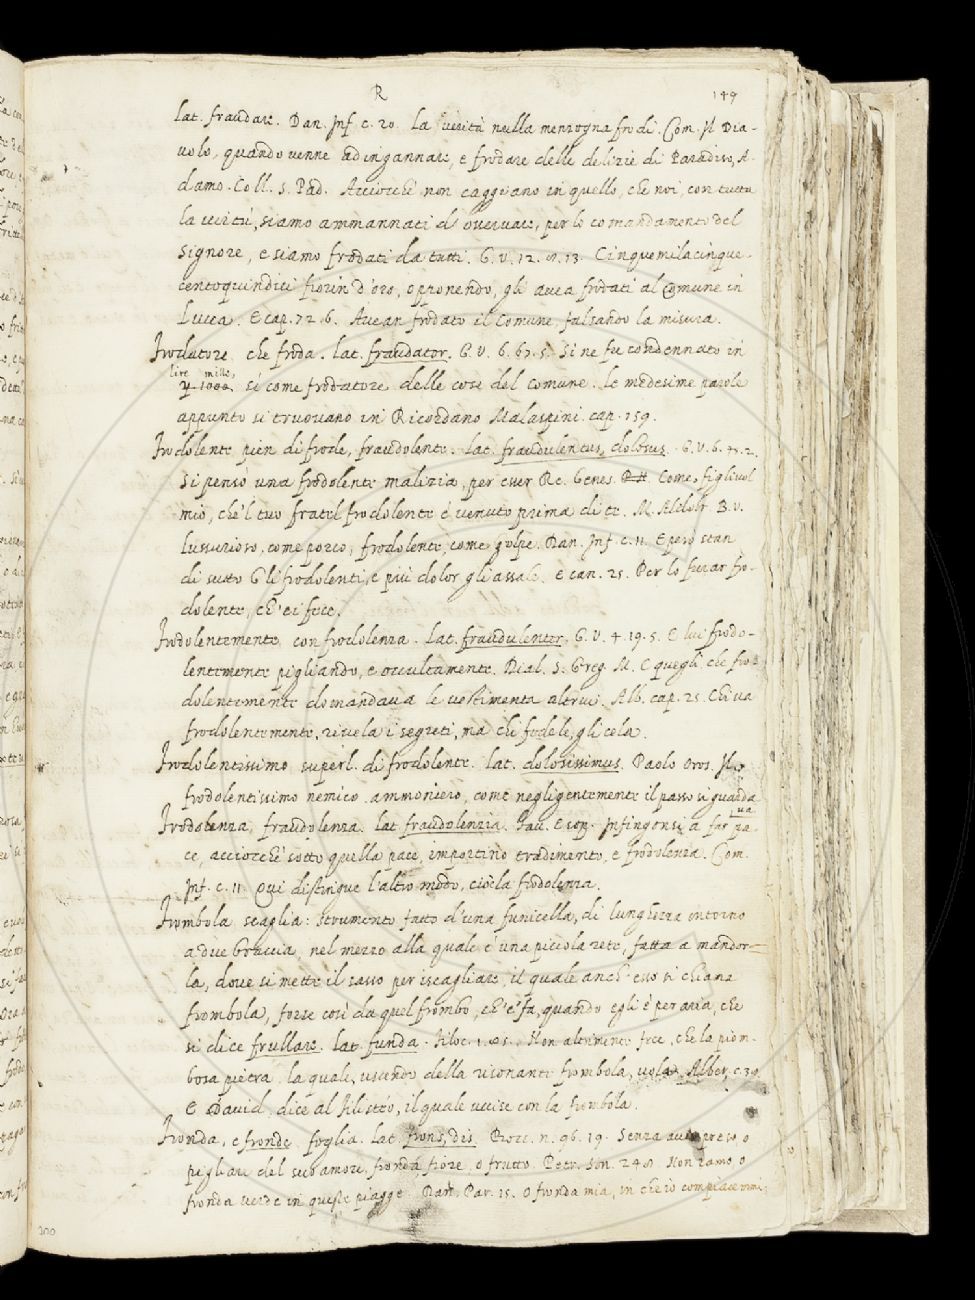 R 149
lat. fraudare. Dan. Inf. c. 20. La verità nella menzogna frodi. Com. Il Dia-
volo, quando venne ad ingannare, e frodare delle delizie di Paradiso, A-
damo. Coll. S. Pad. Acciocchè non caggiano in quello, che noi, con tutta
la virtù, siamo ammannati di overvare, per lo comandamento del
Signore, e siamo frodati da tutti. G. V. 12. 8. 13. Cinquemilacinque-
centoquindici fiorin d'oro, opponendo, gli avea frodati al Comune in
Lucca. E cap. 72. 6. Avean frodato il Comune, falsando la misura.
Frodatore. che froda. lat. fraudator. G. V. 6. 67. 5. Si ne fu condennato in
lire mille,
1000. sì come frodatore delle cose del comune. Le medesime parole
appunto si truovano in Ricordano Malaspini. cap. 159.
Frodolente pien di frode, fraudolente. Lat. fraudulentus, dolosus. G. V. 6.
Si pensò una frodolente malizia, per esser Re. Genes. Come, figliuol
mio, che'l tuo fratel frodolente è venuto prima di te. M. Aldobr. B. V.
lussurioso, come porco, frodolente, come golpe. Dan. Inf. c. 11. E però stan
di sutto Gli frodolenti, e più dolor gli assale. E can. 25. Per lo furar fro-
dolente, ch'ei fece.
Frodolentemente. con frodolenza. Lat. fraudulenter. G. V. 4. 19. 5. E lui frodo-
lentemente pigliando, e occultamente. Dial. S. Greg. M. E quegli che fro-
dolentemente domandava le vestimenta altrui. Alb. cap. 25. Chi va
frodolentemente, rivela i segreti, ma chi fedele, gli cela.
Frodolentissimo superl. di frodolente. lat. dolosissimus. Paolo Oros. Il
frodolentissimo nemico ammoniero, come negligentemente il passo si guarda
va
Frodolenza, fraudolenza. lat. fraudolenzia. Fav. Esop. Infingonsi a far pa-
ce, acciocchè sotto quella pace, importino tradimento, e frodolenza. Com.
Inf. c. 11. Qui distingue l'altro modo, cioè la frodolenza.
Frombola scaglia: Strumento fatto d'una funicella, di lunghezza intorno
a due braccia, nel mezzo alla quale è una piccola rete, fatta a mandor-
la, dove si mette il sasso per iscagliare, il quale anch'esso si chiama
frombola, forse così da quel frombo, ch'e' fa, quando egli è per aria, che
si dice frullare. lat. funda. Filoc. 1. Non altrimenti fece, che la piom-
bosa pietra, la quale, uscendo della risonante frombola, vola. Alber. c. 39.
E David, dice al Filisteo, il quale uccise con la frombola.
Fronda, e fronde. foglia. lat. frons, dis. Bocc. n. 96. 19. Senza aver preso, o
pigliare del suo amore, fronda, fiore, o frutto. Petr. Son. 248. Non ramo o
fronda verde in queste piagge. Dan. Par. 15. O fronda mia, in che io compiacemmi
300